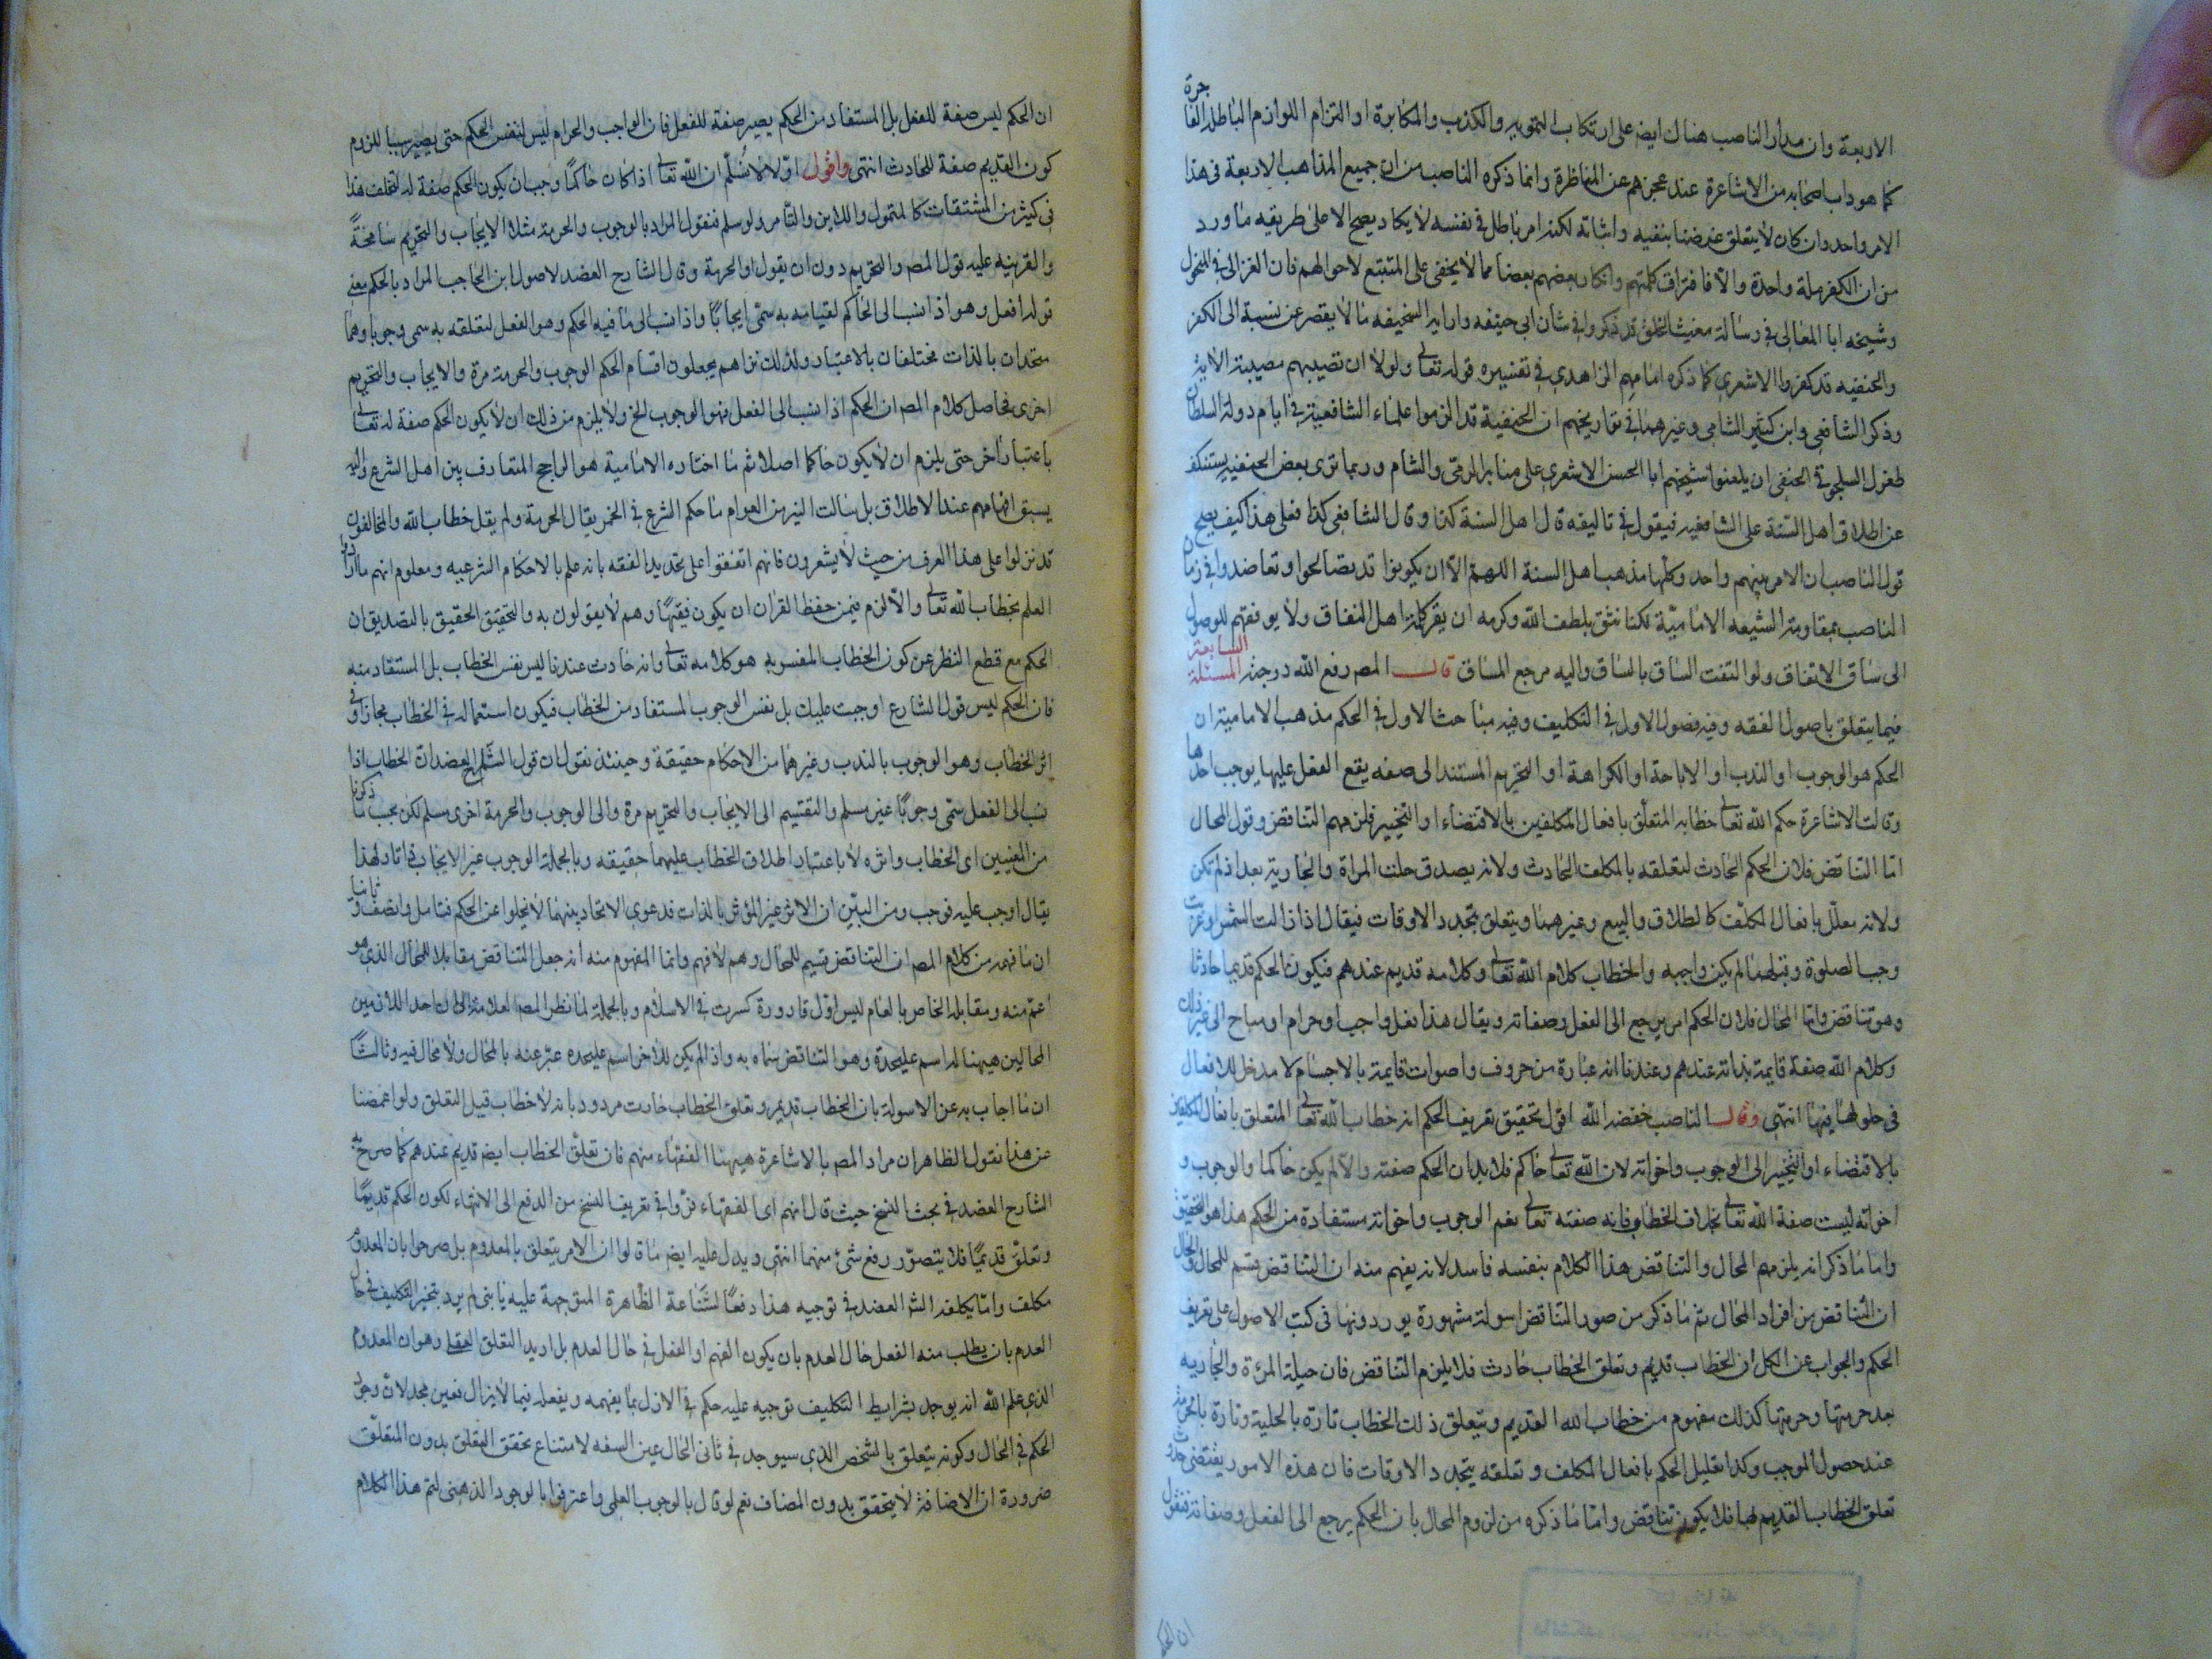 الاربعة وان مدار الناصب هناك ايضا على ارتكاب التمويه والكذب والمكابرة او التزام اللوازم الباطل الفاجرة
كما هو داب اصحابه من الاشاعرة عند عجزهم عن المناظرة وانما ذكره الناصب من ان جميع المذاهب الاربعة فى هذا
الامر واحد وان كان لا يتعلق غرضنا بنفيه واثباته لكنه امر باطل فى نفسه لا يكاد يصح الا على طريقه ما ورد
من ان الكفر ملة واحدة والا فافتراق كلمتهم وانكار بعضهم بعضا مما لا يخفى على المتتبع لاحوالهم فان الغزالى فى المنخول
وشيخه ابا المعالى فى رسالة مغيث الخلق قد ذكروا فى شان ابى حنيفه وارايه السخيفه ما لا يقصر عن نسبة الى الكفر
والحنفيه قد كفروا الاشعرى كما ذكره امامهم الزاهدى فى تفسيره قوله تعالى ولولا ان تصيبهم مصيبة الاية
وذكر الشافعى وابن كثير الشامى وغيرهما فى تواريخهم ان الحنفية قد الزموا علماء الشافعية فى ايام دولة السلطان
طغرل السلجوقى الحنفى ان يلعنوا شيخهم ابا الحسن الاشعرى على منابر الرى والشام وربما ترى بعض الحنفيه يستنكف
عن اطلاق اهل السنة على الشافعيه فيقول فى تاليفه قال اهل السنة كذا وقال الشافعى كذا فعلى هذا كيف يصح
قول الناصب ان الامر بينهم واحد وكلها مذهب اهل السنة اللهم الا ان يكونوا قد تصالحوا وتعاضدوا فى زمان
الناصب بمقاومة الشيعه الامامية لكنا نثق بلطف الله وكرمه ان يفرق كلمة اهل النفاق ولا يوفقهم للوصول
الى ساق الاتفاق ولو التفت الساق بالساق واليه مرجع المساق قال المصنف رفع الله درجته المسئلة السابعة
فيما يتعلق باصول الفقه وفيه فصول الاول فى التكليف وفيه مباحث الاول فى الحكم مذهب الامامية ان
الحكم هو الوجوب او الندب او الاباحة او الكراهة او التحريم المستند الى صفه يقع الفعل عليها يوجب احدها
وقالت الاشاعرة حكم الله تعالى خطابه المتعلق بافعال المكلفين بالاقتضاء او التخيير فلزمهم التناقض وقول المحال
اما التناقض فلان الحكم الحادث لتعلقه بالمكلف الحادث ولانه يصدق حلت المراة والجارية بعد اذ لم تكن
ولانه معلل بافعال المكلف كالطلاق والبيع وغيرهما ويتعلق بتجدد الاوقات فيقال اذا زالت الشمس او غربت
وجب الصلوة وقبلهما لم يكن واجبه والخطاب كلام الله تعالى وكلامه قديم عندهم فيكون الحكم قديما حادثا
وهو تناقض واما المحال فلان الحكم امر يرجع الى الفعل وصفاته ويقال هذا فعل واجب او حرام او مباح الى غير ذلك
وكلام الله صفة قايمة بذاته عندهم وعندنا انه عبارة من حروف واصوات قايمة بالاجسام لا مدخل للافعال
فى حلولها فيها انتهى وقال الناصب خفضه الله اقول تحقيق تعريف الحكم انه خطاب الله تعالى المتعلق بافعال المكلفين
بالاقتضاء او التخيير الى الوجوب واخواته لان الله تعالى حاكم فلا بد ان الحكم صفته والا لم يكن حاكما والوجوب و
اخواته ليست صفة الله تعالى بخلاف الخطاب فانه صفته تعالى نعم الوجوب واخواته مستفادة من الحكم هذا هو التحقيق
واما ما ذكر انه يلزمهم المحال والتناقض هذا الكلام بنفسه فاسد لانه يفهم منه ان التناقض قسيم للمحال والحال
ان التناقض من افراد المحال ثم ما ذكر من صور التناقض اسولة مشهورة يوردونها فى كتب الاصول على تعريف
الحكم والجواب عن الكل ان الخطاب قديم وتعلق الخطاب حادث فلا يلزم التناقض فان حيلة المرءة والجاريه
بعد حرمتها وحرمتها كذلك مفهوم من خطاب الله القديم ويتعلق ذلك الخطاب تارة بالحلية وتارة بالحرمة
عند حصول الموجب وكذا تعليل الحكم بافعال المكلف وتعلقه بتجدد الاوقات فان هذه الامور يقتضى حدوث
تعلق الخطاب القديم لها فلا يكون تناقض واما ما ذكره من لزوم المحال بان الحكم يرجع الى الفعل وصفاته فنقول
ان الحكم
ان الحكم ليس صفة للفعل بل المستفاد من الحكم يصير صفة للفعل فان الواجب والحرام ليس لنفس الحكم حتى يصير سببا للزوم
كون القديم صفة للحادث انتهى واقول اولا لا نسلم ان الله تعالى اذا كان حاكما وجب ان يكون الحكم صفة له لتخلف هذا
فى كثير من المشتقات كالمتمول واللابن والتامر ولو سلم فنقول المراد بالوجوب والحرمة مثلا الايجاب والتحريم مسامحة
والقرينه عليه قول المصنف والتحريم دون ان يقول او الحرمة وقال الشارح العضد لاصول ابن الحاجب المراد بالحكم معنى
قوله افعل وهو اذا نسب الى الحاكم لقيامه به سمى ايجابا واذا نسب الى ما فيه الحكم وهو الفعل لتعلقه به سمى وجوبا وهما
متحدان بالذات مختلفان بالاعتبار ولذلك تراهم يجعلون اقسام الحكم الوجوب والحرمة مرة والايجاب والتحريم
اخرى فحاصل كلام المصنف ان الحكم اذا نسب الى الفعل فهو الوجوب الخ ولا يلزم من ذلك ان لا يكون الحكم صفة له تعالى
باعتبار اخر حتى يلزم ان لا يكون حاكما اصلا ثم ما اختاره الامامية هو الراجح المتعارف بين اهل الشرع واليه
يسبق افهامهم عند الاطلاق بل سالت اليزمن العوام ما حكم الشرع فى الخمر يقال الحرمة ولم يقل خطاب الله والمخالفون
قد نزلوا على هذا العرف من حيث لا يشعرون فانهم اتفقوا على تحديد الفقه بانه علم بالاحكام الشرعيه ومعلوم انهم ما ارادوا
العلم بخطاب الله تعالى والا لزم فيمن حفظ القران ان يكون فقيها وهم لا يقولون به والتحقيق الحقيق بالتصديق ان
الحكم مع قطع النظر عن كون الخطاب المفسر به هو كلامه تعالى وانه حادث عندنا ليس نفس الخطاب بل المستفاد منه
فان الحكم ليس قول الشارع اوجبت عليك بل نفس الوجوب المستفاد من الخطاب فيكون استعماله فى الخطاب مجازا وفى
اثر الخطاب وهو الوجوب بالندب وغيرهما من الاحكام حقيقة وحينئذ نقول ان قول الشارح العضد ان الخطاب اذا
نسب الى الفعل سمى وجوبا غير مسلم والتقسيم الى الايجاب والتحريم مرة والى الوجوب والحرمة اخرى مسلم لكن بحسب ما ذكرنا
من المعنيين اى الخطاب واثره لا باعتبار اطلاق الخطاب عليهما حقيقه وبالجملة الوجوب غير الايجاب فى انا د لهذا
يقال اوجب عليه فوجب ومن البين ان الاثر غير المؤثر بالذات فدعوى الاتحاد بينهما لا يخلوا عن الحكم فتامل وانصف وثانيا
ان ما فهمه من كلام المصنف ان التناقض قسيم للمحال وهم لا فهم وانما المفهوم منه انه جعل التناقض مقابلا للمحال الذى هو
اعم منه ومقابلة الخاص بالعام ليس اول قارورة كسرت فى الاسلام وبالجملة لما نظر المصنف العلامة الى ان احد اللازمين
المحالين ههنا له اسم عليحدة وهو التناقض سماه به واذا لم يكن للاخر اسم عليحده عبر عنه بالمحال ولا محال فيه وثالثا
ان ما اجاب به عن الاسولة بان الخطاب قديم وتعلق الخطاب حادث مردود بانه لا خطاب قبل التعلق ولو اغمضنا
عن هذا نقول الظاهر ان مراد المصنف بالاشاعرة ههنا الفقهاء منهم فان تعلق الخطاب ايضا قديم عندهم كما صرح به
الشارح العضد فى بحث النسخ حيث قال انهم اى الفقهاء فروا فى تعريف النسخ من الدفع الى الانتهاء لكون الحكم قديما
وتعلق قديما فلا يتصور رفع شئ منهما انتهى ويدل عليه ايضا ما قالوا ان الامر يتعلق بالمعدوم بل صرحوا بان المعدوم
مكلف واما تكلفه الشارح العضد فى توجيه هذا دفعا لشناعة الظاهرة المتوجهة عليه يا بنى لم يرد بتخير التكليف فى حال
العدم بان يطلب منه الفعل حال العدم بان يكون الفهم او الفعل فى حال العدم بل اريد التعلق العقلى وهو ان المعدوم
الذى علم الله انه يوجد بشرايط التكليف توجيه عليه حكم فى الازل بما يفهمه ويفعله فيما لا يزال فعين مجدلان وجود
الحكم فى الحال وكونه يتعلق بالشخص الذى سيوجد فى ثانى الحال عين السفه لامتناع تحقق المتعلق بدون المتعلق
ضرورة ان الاضافة لا يتحقق بدون المضاف نعم لو قال بالوجوب العلمى واعترفوا بالوجود الذهنى لتم هذا الكلام